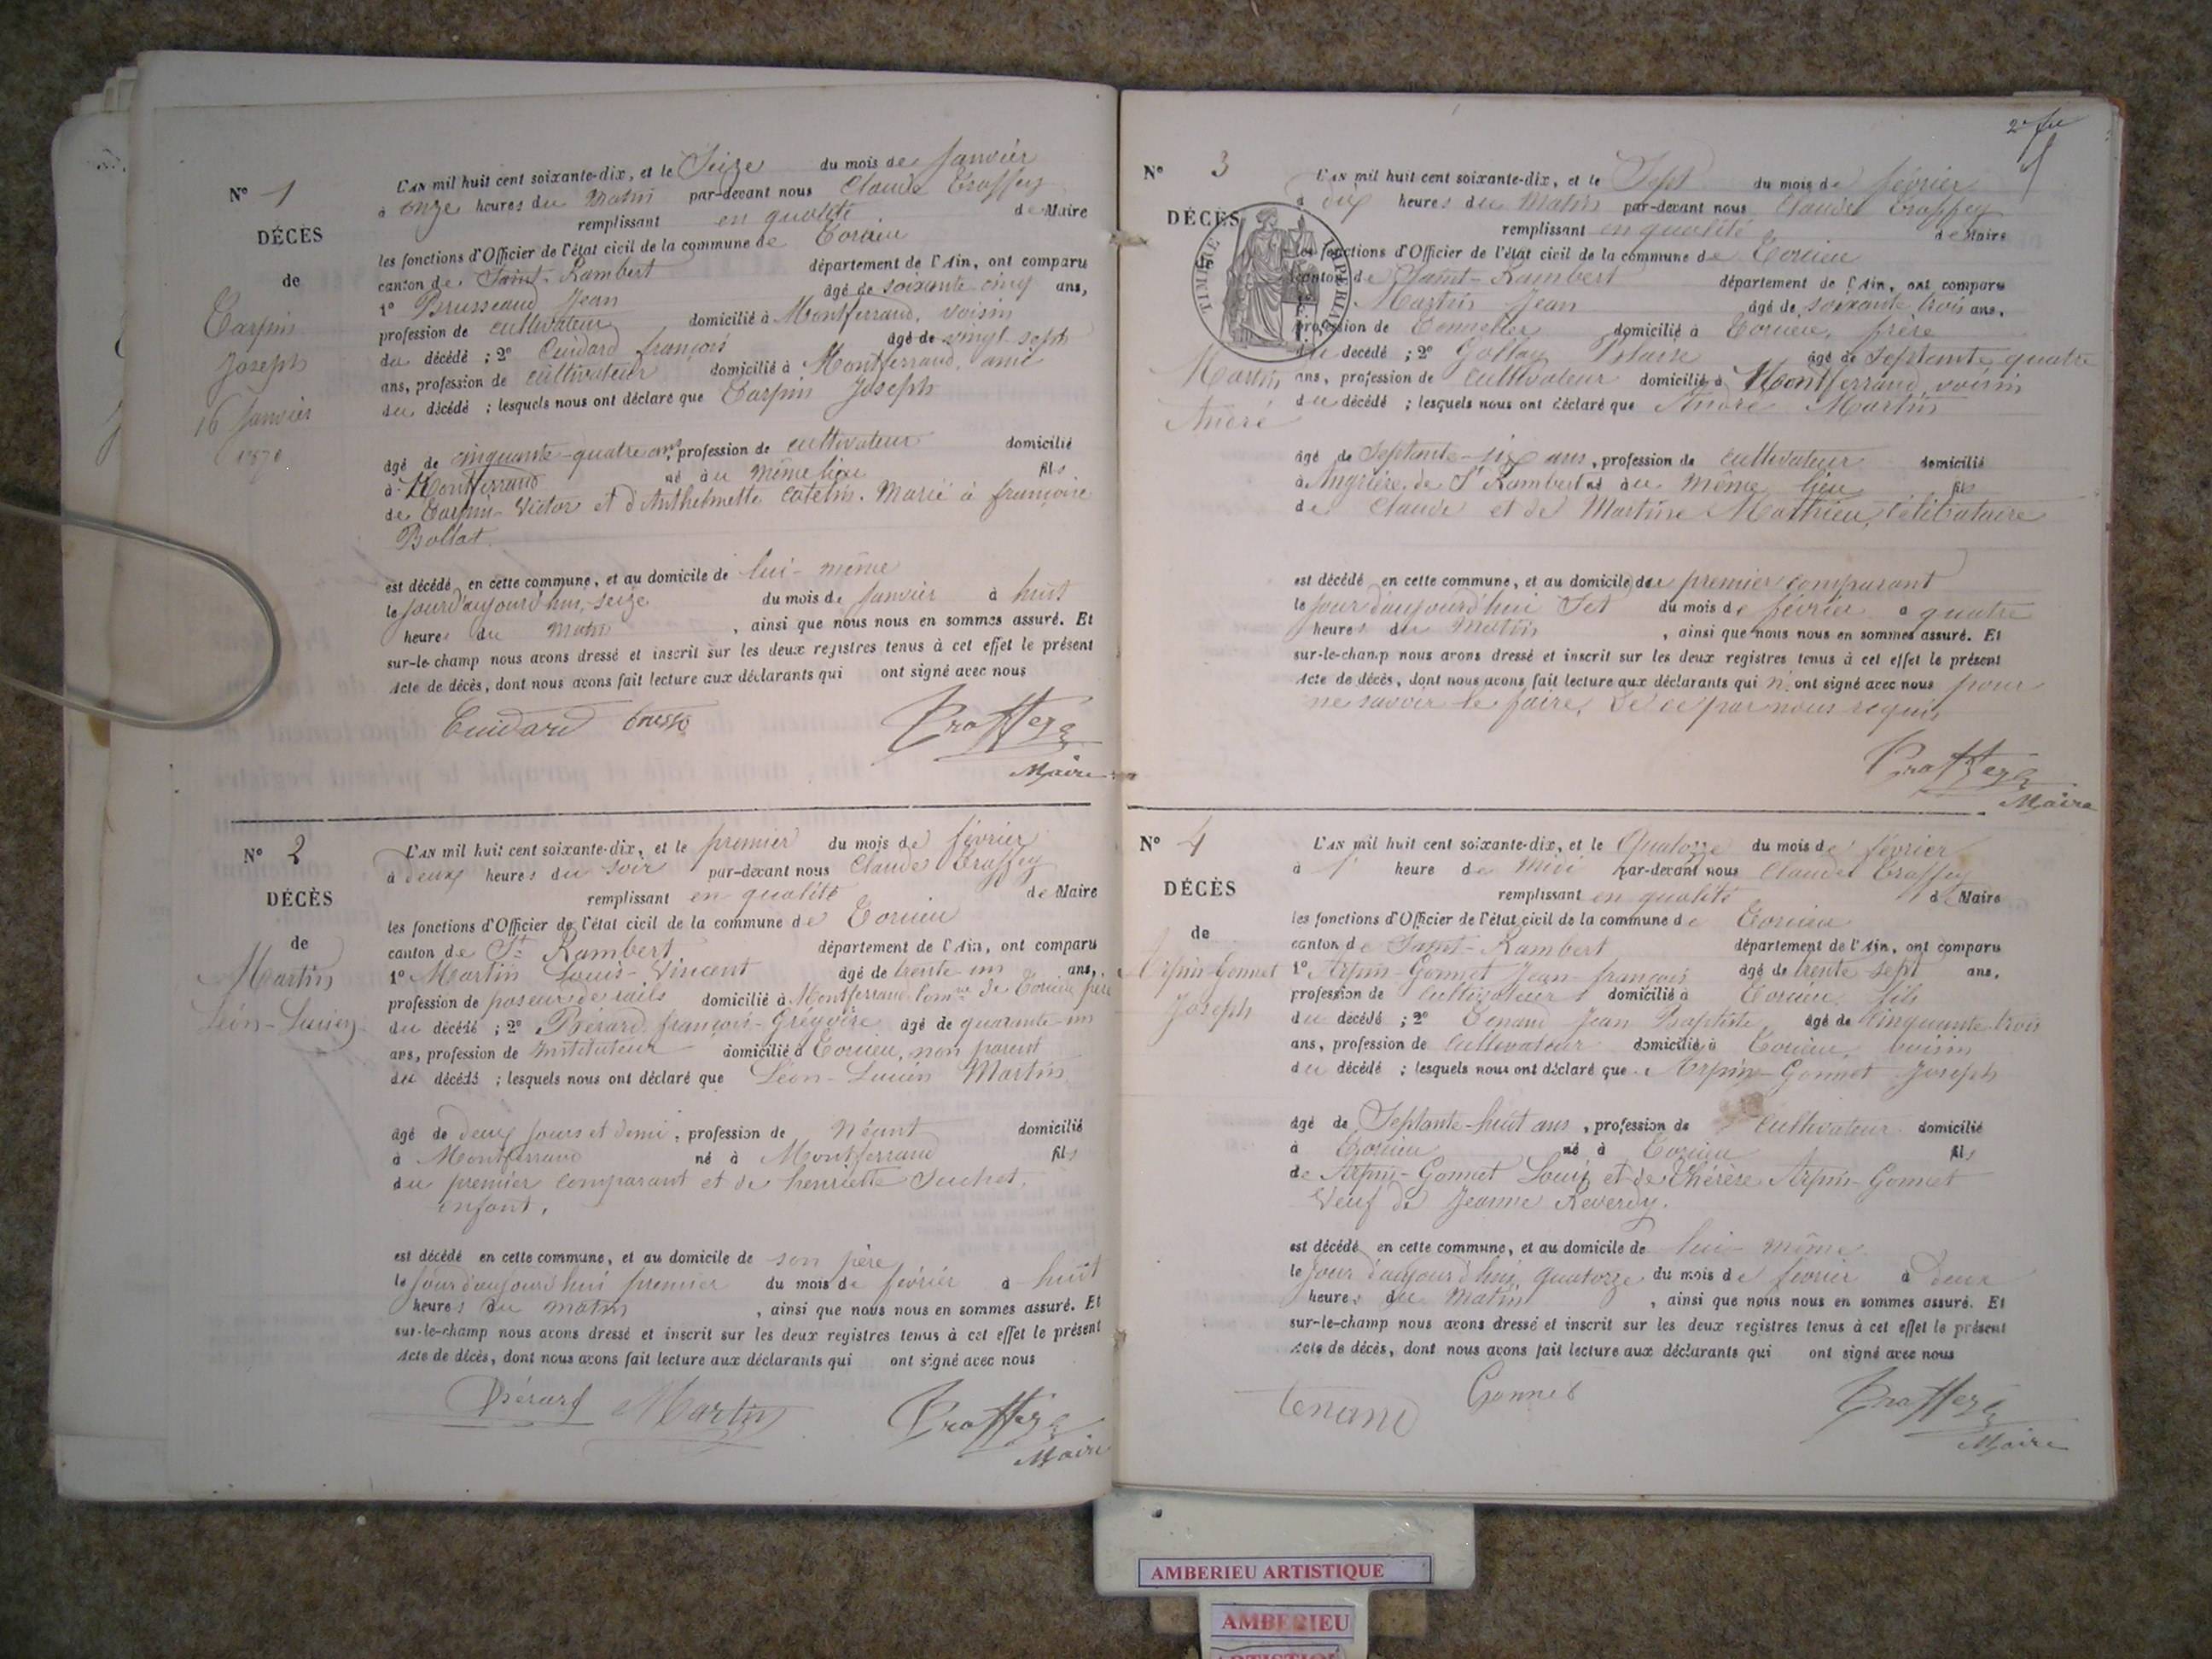 N° 1
DÉCÈS
de
Tarpin
Joseph
16 Janvier
1870
L'AN mil huit cent soixante-dix, et le Seize du mois de Janvier
à onze heures du Matin par-devant nous Claude Traffey
remplissant en qualité de Maire
les fonctions d'Officier de l'état civil de la commune de Torcieu
canton de Saint-Rambert département de l'Ain, ont comparu
1° Brusseaud Jean âgé de soixante cinq ans,
profession de cultivateur domicilié à Montferrand, voisin
du décédé ; 2° Cuidard françois âgé de vingt sept
ans, profession de cultivateur domicilié à Montferrand, ami
du décédé ; lesquels nous ont déclaré que Tarpin Joseph
âgé de cinquante-quatre ans, profession de cultivateur domicilié
à Montferrand né au même lieu fils
de Tarpin Victor et d'Anthelmette Catelin. Marié à françoise
Bollat.
est décédé en cette commune, et au domicile de lui-même
le jourd'aujourd'hui, seize du mois de Janvier à huit
heures du matin, ainsi que nous nous en sommes assuré. Et
sur-le-champ nous avons dressé et inscrit sur les deux registres tenus à cet effet le présent
Acte de décès, dont nous avons fait lecture aux déclarants qui ont signé avec nous
Cuidard Traffey
Maire
N° 2
DÉCÈS
de
Martin
Léon-Lucien
L'AN mil huit cent soixante-dix, et le premier du mois de février
à deux heures du soir par-devant nous Claude Traffey
remplissant en qualité de Maire
les fonctions d'Officier de l'état civil de la commune de Torcieu
canton de St Rambert département de l'Ain, ont comparu
1° Martin Louis-Vincent âgé de trente-un ans,
profession de poseur de rails domicilié à Montferrand Comne de Torcieu père
du décédé ; 2° Bérard françois-Grégoire âgé de quarante-un
ans, profession de Instituteur domicilié à Torcieu, non parent
du décédé ; lesquels nous ont déclaré que Léon-Lucien Martin
âgé de deux jours et demi, profession de Néant domicilié
à Montferrand né à Montferrand fils
du premier comparant et de henriette Suchet,
enfant.
est décédé en cette commune, et au domicile de son père
le jourd'aujourd'hui premier du mois de février à huit
heures du matin, ainsi que nous nous en sommes assuré. Et
sur-le-champ nous avons dressé et inscrit sur les deux registres tenus à cet effet le présent
Acte de décès, dont nous avons fait lecture aux déclarants qui ont signé avec nous
Bérard Martin Traffey
Maire
2e fu
N° 3
DÉCÈS
TIMBRE IMPERIAL
Martin
André
L'AN mil huit cent soixante-dix, et le Sept du mois de février
à dix heures du Matin par-devant nous Claude Traffey
remplissant en qualité de Maire
les fonctions d'Officier de l'état civil de la commune de Torcieu
canton de Saint-Rambert département de l'Ain, ont comparu
Martin Jean âgé de soixante trois ans,
profession de Tonnelier domicilié à Torcieu, frère
du décédé ; 2° Gollay âgé de septante quatre
ans, profession de cultivateur domicilié à Montferrand, voisin
du décédé ; lesquels nous ont déclaré que André Martin
âgé de Septante-six ans, profession de cultivateur domicilié
à Angrière de St Rambert né au même lieu fils
de Claude et de Martine Mathieu, célibataire
est décédé en cette commune, et au domicile du premier comparant
le jour d'aujourd'hui Set du mois de février à quatre
heures du Matin, ainsi que nous nous en sommes assuré. Et
sur-le-champ nous avons dressé et inscrit sur les deux registres tenus à cet effet le présent
Acte de décès, dont nous avons fait lecture aux déclarants qui n'ont signé avec nous pour
ne savoir le faire, de ce par nous requis
Traffey
Maire
N° 4
DÉCÈS
de
Arpin-Gonnet
Joseph
L'AN mil huit cent soixante-dix, et le Quatorze du mois de février
à 1 heure de Midi par-devant nous Claude Traffey
remplissant en qualité de Maire
les fonctions d'Officier de l'état civil de la commune de Torcieu
canton de Saint-Rambert département de l'Ain, ont comparu
1° Arpin-Gonnet Jean-françois âgé de trente sept ans,
profession de cultivateur domicilié à Torcieu, fils
du décédé ; 2° Tenand Jean Baptiste âgé de cinquante trois
ans, profession de cultivateur domicilié à Torcieu, voisin
du décédé ; lesquels nous ont déclaré que Arpin-Gonnet Joseph
âgé de Septante-huit ans, profession de cultivateur domicilié
à Torcieu né à Torcieu fils
de Arpin-Gonnet Louis et de Thérèse Arpin-Gonnet
Veuf de Jeanne Reverdy.
est décédé en cette commune, et au domicile de lui-même.
le jour d'aujourd'hui, quatorze du mois de février à deux
heures du Matin, ainsi que nous nous en sommes assuré. Et
sur-le-champ nous avons dressé et inscrit sur les deux registres tenus à cet effet le présent
Acte de décès, dont nous avons fait lecture aux déclarants qui ont signé avec nous
tenand Gonnet Traffey
Maire
AMBERIEU ARTISTIQUE
AMBERIEU
ARTISTIQUE